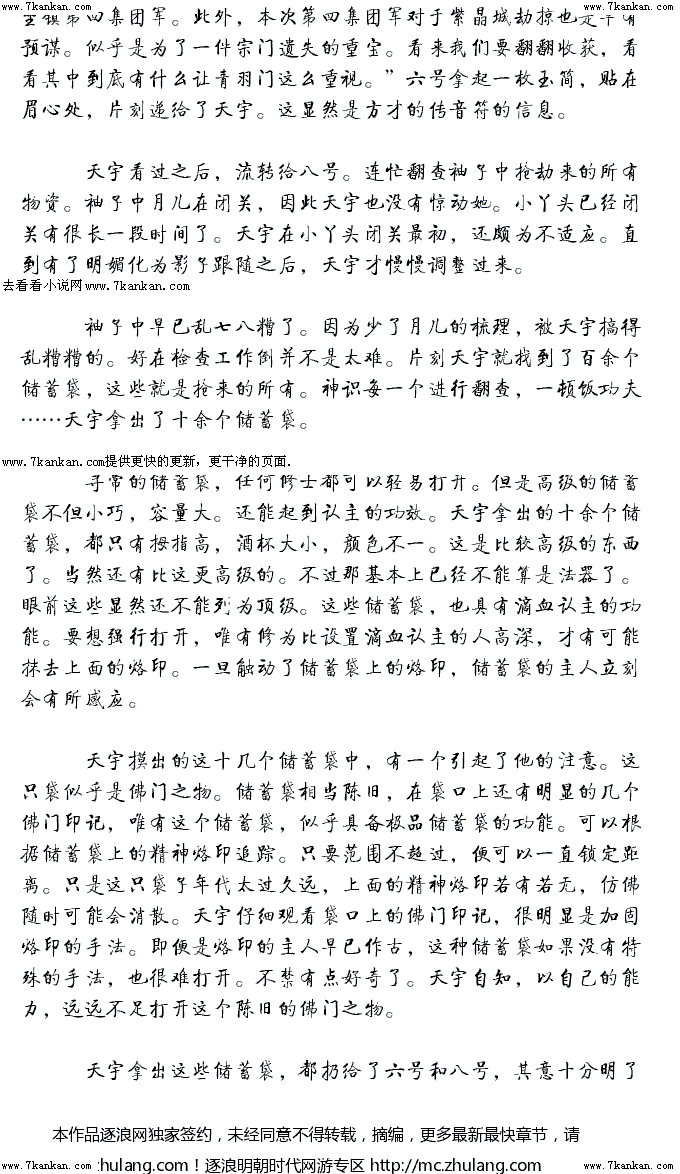 www.7kankan.com www.7kankan.com
第四集团军。此外，本次第四集团军对于紫晶城劫掠也是早有
预谋。似乎是为了一件宗门遗失的重宝。看来我们要翻翻收获，看
看其中到底有什么让青羽门这么重视。”六号拿起一枚玉简，贴在
眉心处，片刻递给了天宇。这显然是方才的传音符的信息。
天宇看过之后，流转给八号。连忙翻查袖子中抢劫来的所有
物资。袖子中月儿在闭关，因此天宇也没有惊动她。小丫头已经闭
关有很长一段时间了。天宇在小丫头闭关最初，还颇为不适应。直
到有了明媚化为影子跟随之后，天宇才慢慢调整过来。
去看看小说网www.7kankan.com
袖子中早已乱七八糟了。因为少了月儿的梳理，被天宇搞得
乱糟糟的。好在检查工作倒并不是太难。片刻天宇就找到了百余个
储蓄袋，这些就是抢来的所有。神识每一个进行翻查，一顿饭功夫
……天宇拿出了十余个储蓄袋。
www.7kankan.com提供更快的更新，更干净的页面.
寻常的储蓄袋，任何修士都可以轻易打开。但是高级的储蓄
袋不但小巧，容量大。还能起到认主的功效。天宇拿出的十余个储
蓄袋，都只有拇指高，酒杯大小，颜色不一。这是比较高级的东西
了。当然还有比这更高级的。不过那基本上已经不能算是法器了。
眼前这些显然还不能列为顶级。这些储蓄袋，也具有滴血认主的功
能。要想强行打开，唯有修为比设置滴血认主的人高深，才有可能
抹去上面的烙印。一旦触动了储蓄袋上的烙印，储蓄袋的主人立刻
会有所感应。
天宇摸出的这十几个储蓄袋中，有一个引起了他的注意。这
只袋似乎是佛门之物。储蓄袋相当陈旧，在袋口上还有明显的几个
佛门印记，唯有这个储蓄袋，似乎具备极品储蓄袋的功能。可以根
据储蓄袋上的精神烙印追踪。只要范围不超过，便可以一直锁定距
离。只是这只袋子年代太过久远，上面的精神烙印若有若无，仿佛
随时可能会消散。天宇仔细观看袋口上的佛门印记，很明显是加固
烙印的手法。即便是烙印的主人早已作古，这种储蓄袋如果没有特
殊的手法，也很难打开。不禁有点好奇了。天宇自知，以自己的能
力，远远不足打开这个陈旧的佛门之物。
天宇拿出这些储蓄袋，都扔给了六号和八号，其意十分明了
本作品逐浪网独家签约，未经同意不得转载，摘编，更多最新最快章节，请
www.7kankan.com zhulang.com！逐浪明朝时代网游专区 http://mc.zhulang.com www.7kankan.com